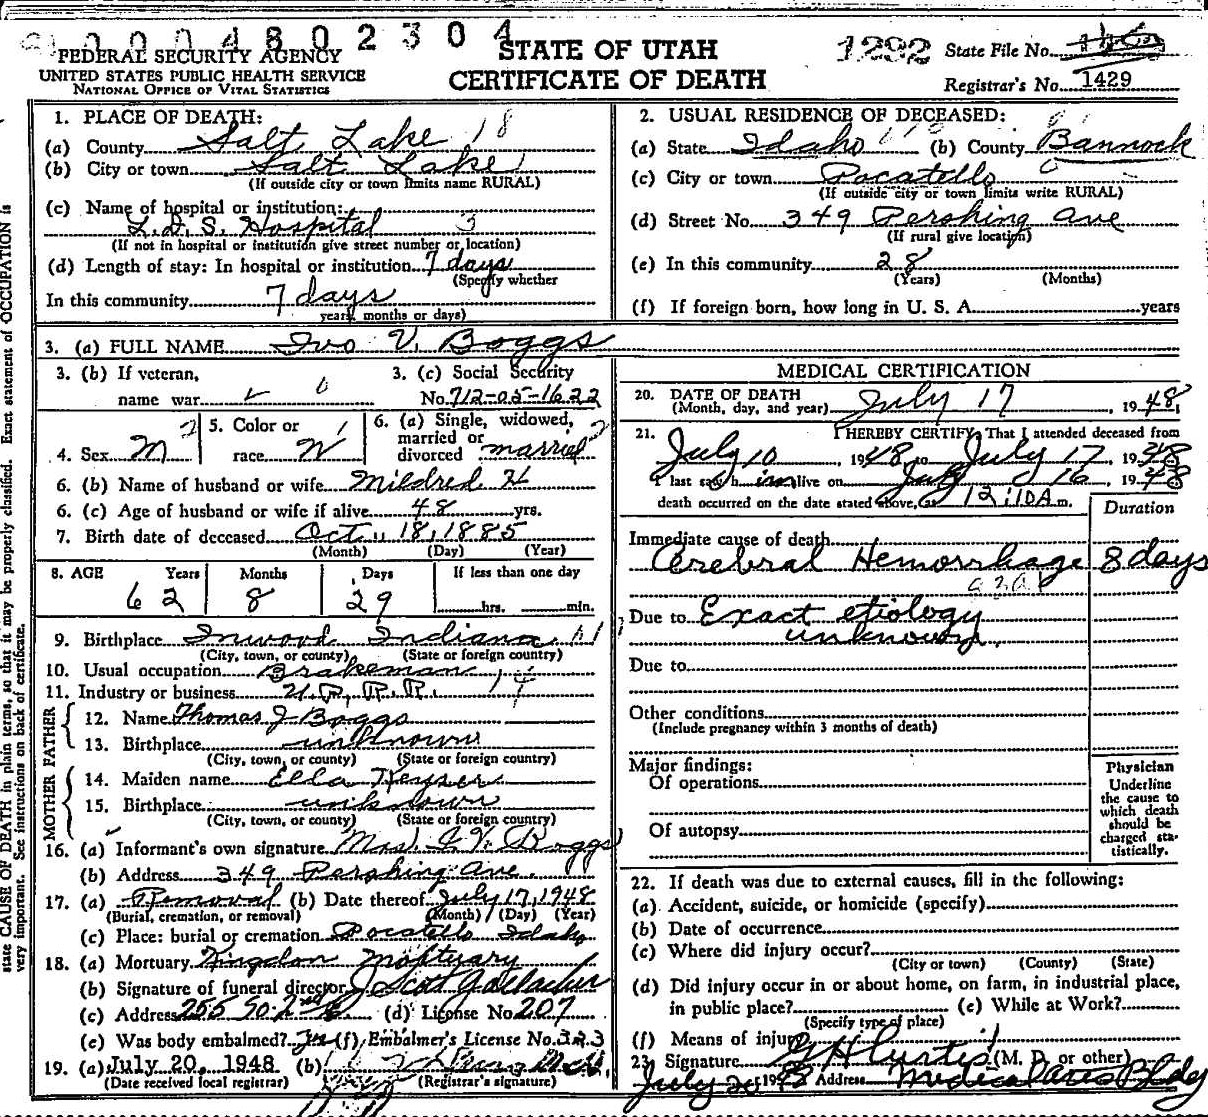 0004802304
FEDERAL SECURITY AGENCY
UNITED STATES PUBLIC HEALTH SERVICE
NATIONAL OFFICE OF VITAL STATISTICS
STATE OF UTAH
CERTIFICATE OF DEATH
1292 State File No.
Registrar's No. 1429
1. PLACE OF DEATH:
(a) County Salt Lake 18
(b) City or town Salt Lake 1
(If outside city or town limits name RURAL)
(c) Name of hospital or institution:
L.D.S. Hospital 3
(If not in hospital or institution give street number or location)
(d) Length of stay: In hospital or institution 7 days
(Specify whether
In this community 7 days
years, months or days)
2. USUAL RESIDENCE OF DECEASED:
(a) State Idaho (b) County Bannock
(c) City or town Pocatello
(If outside city or town limits write RURAL)
(d) Street No. 349 Pershing Ave
(If rural give location)
(e) In this community 28
(Years) (Months)
(f) If foreign born, how long in U. S. A. years
3. (a) FULL NAME Ivo V. Boggs
3. (b) If veteran,
name war
3. (c) Social Security
No. 712-05-1622
4. Sex M 2
5. Color or
race W 1
6. (a) Single, widowed,
married or
divorced married 2
6. (b) Name of husband or wife Mildred H
6. (c) Age of husband or wife if alive 48 yrs.
7. Birth date of deceased Oct. 18, 1885
(Month) (Day) (Year)
8. AGE Years Months Days If less than one day
62 8 29 hrs. min.
9. Birthplace Inwood Indiana
(City, town, or county) (State or foreign country)
10. Usual occupation Brakeman
11. Industry or business U.P.R.R. 14
FATHER
12. Name Thomas J Boggs
13. Birthplace unknown
(City, town, or county) (State or foreign country)
MOTHER
14. Maiden name Ella Keyser
15. Birthplace unknown
(City, town, or county) (State or foreign country)
16. (a) Informant's own signature Mrs. I. V. Boggs
(b) Address 349 Pershing Ave.
17. (a) Removal (b) Date thereof July 17, 1948
(Burial, cremation, or removal) (Month) (Day) (Year)
(c) Place: burial or cremation Pocatello Idaho
18. (a) Mortuary Kingdon Mortuary
(b) Signature of funeral director J Scott Gallacher
(c) Address 255 So. 2nd E (d) License No. 207
(e) Was body embalmed? Yes (f) Embalmer's License No. 323
19. (a) July 20, 1948 (b)
(Date received local registrar) (Registrar's signature)
MEDICAL CERTIFICATION
20. DATE OF DEATH
(Month, day, and year) July 17, 1948,
21. I HEREBY CERTIFY, That I attended deceased from
July 10, 1948 to July 17, 1948
I last saw him alive on July 16, 1948
death occurred on the date stated above, at 12:10A m.
Duration
Immediate cause of death
Cerebral Hemorrhage 8 days
Due to Exact etiology
unknown.
Due to
Other conditions
(Include pregnancy within 3 months of death)
Major findings:
Of operations
Of autopsy
Physician
Underline
the cause to
which death
should be
charged sta-
tistically.
22. If death was due to external causes, fill in the following:
(a) Accident, suicide, or homicide (specify)
(b) Date of occurrence
(c) Where did injury occur?
(City or town) (County) (State)
(d) Did injury occur in or about home, on farm, in industrial place,
in public place? (e) While at Work?
(Specify type of place)
(f) Means of injury
23. Signature G H Curtis (M. D. or other)
July 20 1948 Address Medical Arts Bldg
state CAUSE OF DEATH in plain terms, so that it may be properly classified. Exact statement of OCCUPATION is
very important. See instructions on back of certificate.